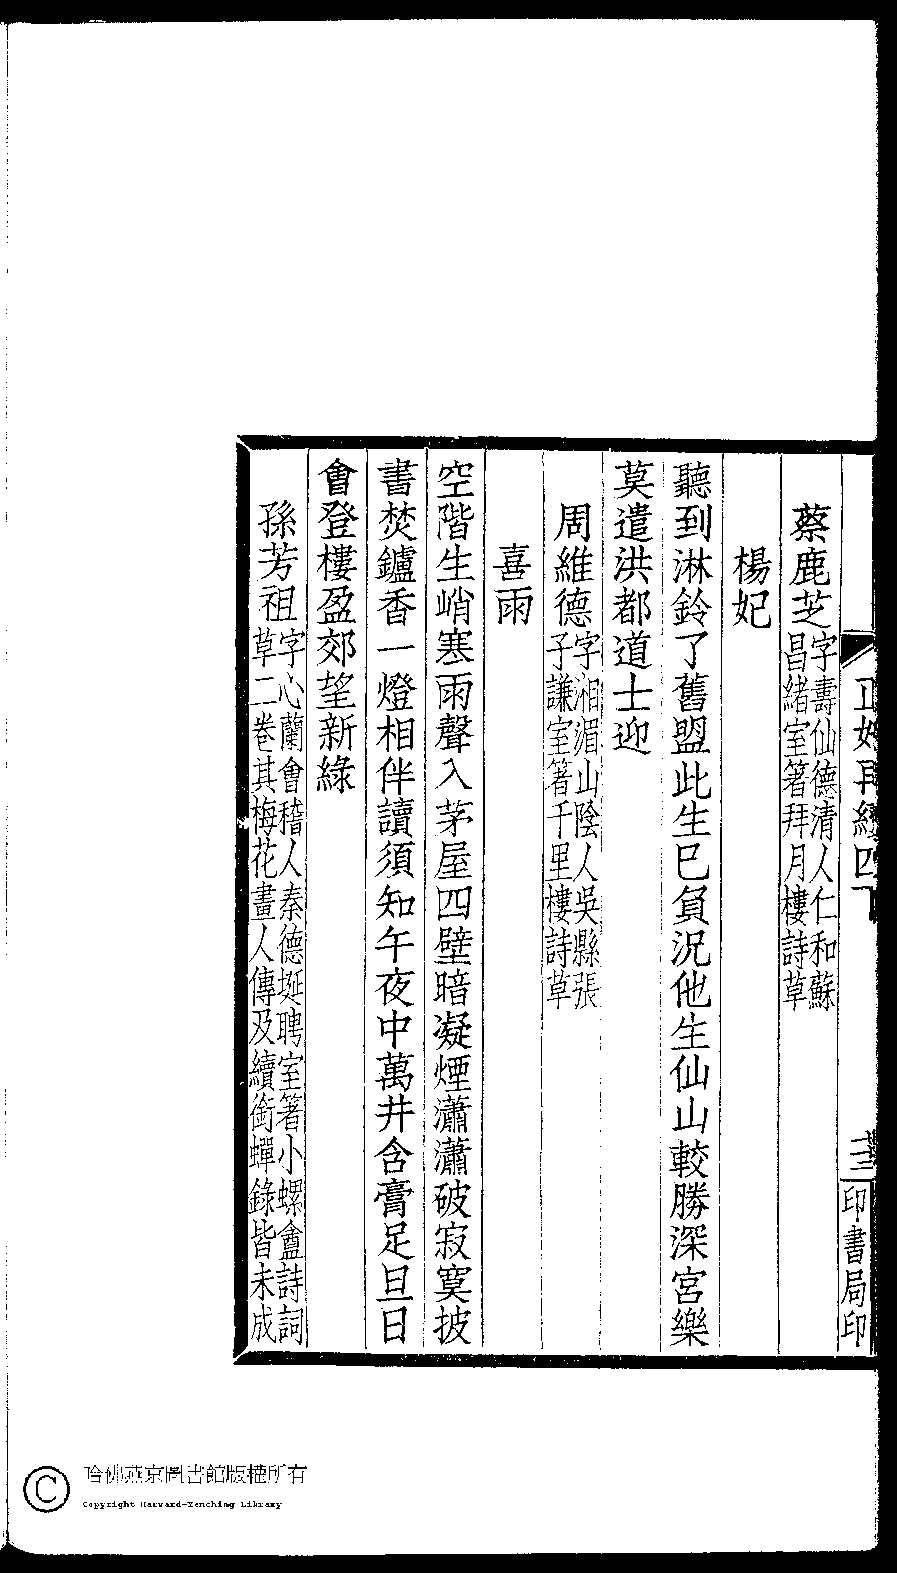 正始再續四下
印書局印
蔡鹿芝字壽仙德清人仁和蘇
昌緒室箸拜月樓詩草
楊妃
聽到淋鈴了舊盟此生巳負況他生仙山較勝深宮樂
莫遣洪都道士迎
周維德字湘湄山陰人吳縣張
子謙室箸千里樓詩草
喜雨
空階生峭寒雨聲入茅屋四壁暗凝煙瀟瀟破寂寞披
書焚鑪香一燈相伴讀須知午夜中萬井含膏足旦日
會登樓盈郊望新綠
孫芳祖字心蘭會稽人秦德埏聘室箸小螺盦詩詞
草二卷其梅花畫人傳及續銜蟬錄皆未成
哈佛燕京圖書館版權所有
Copyright Harvard-Yenching Library